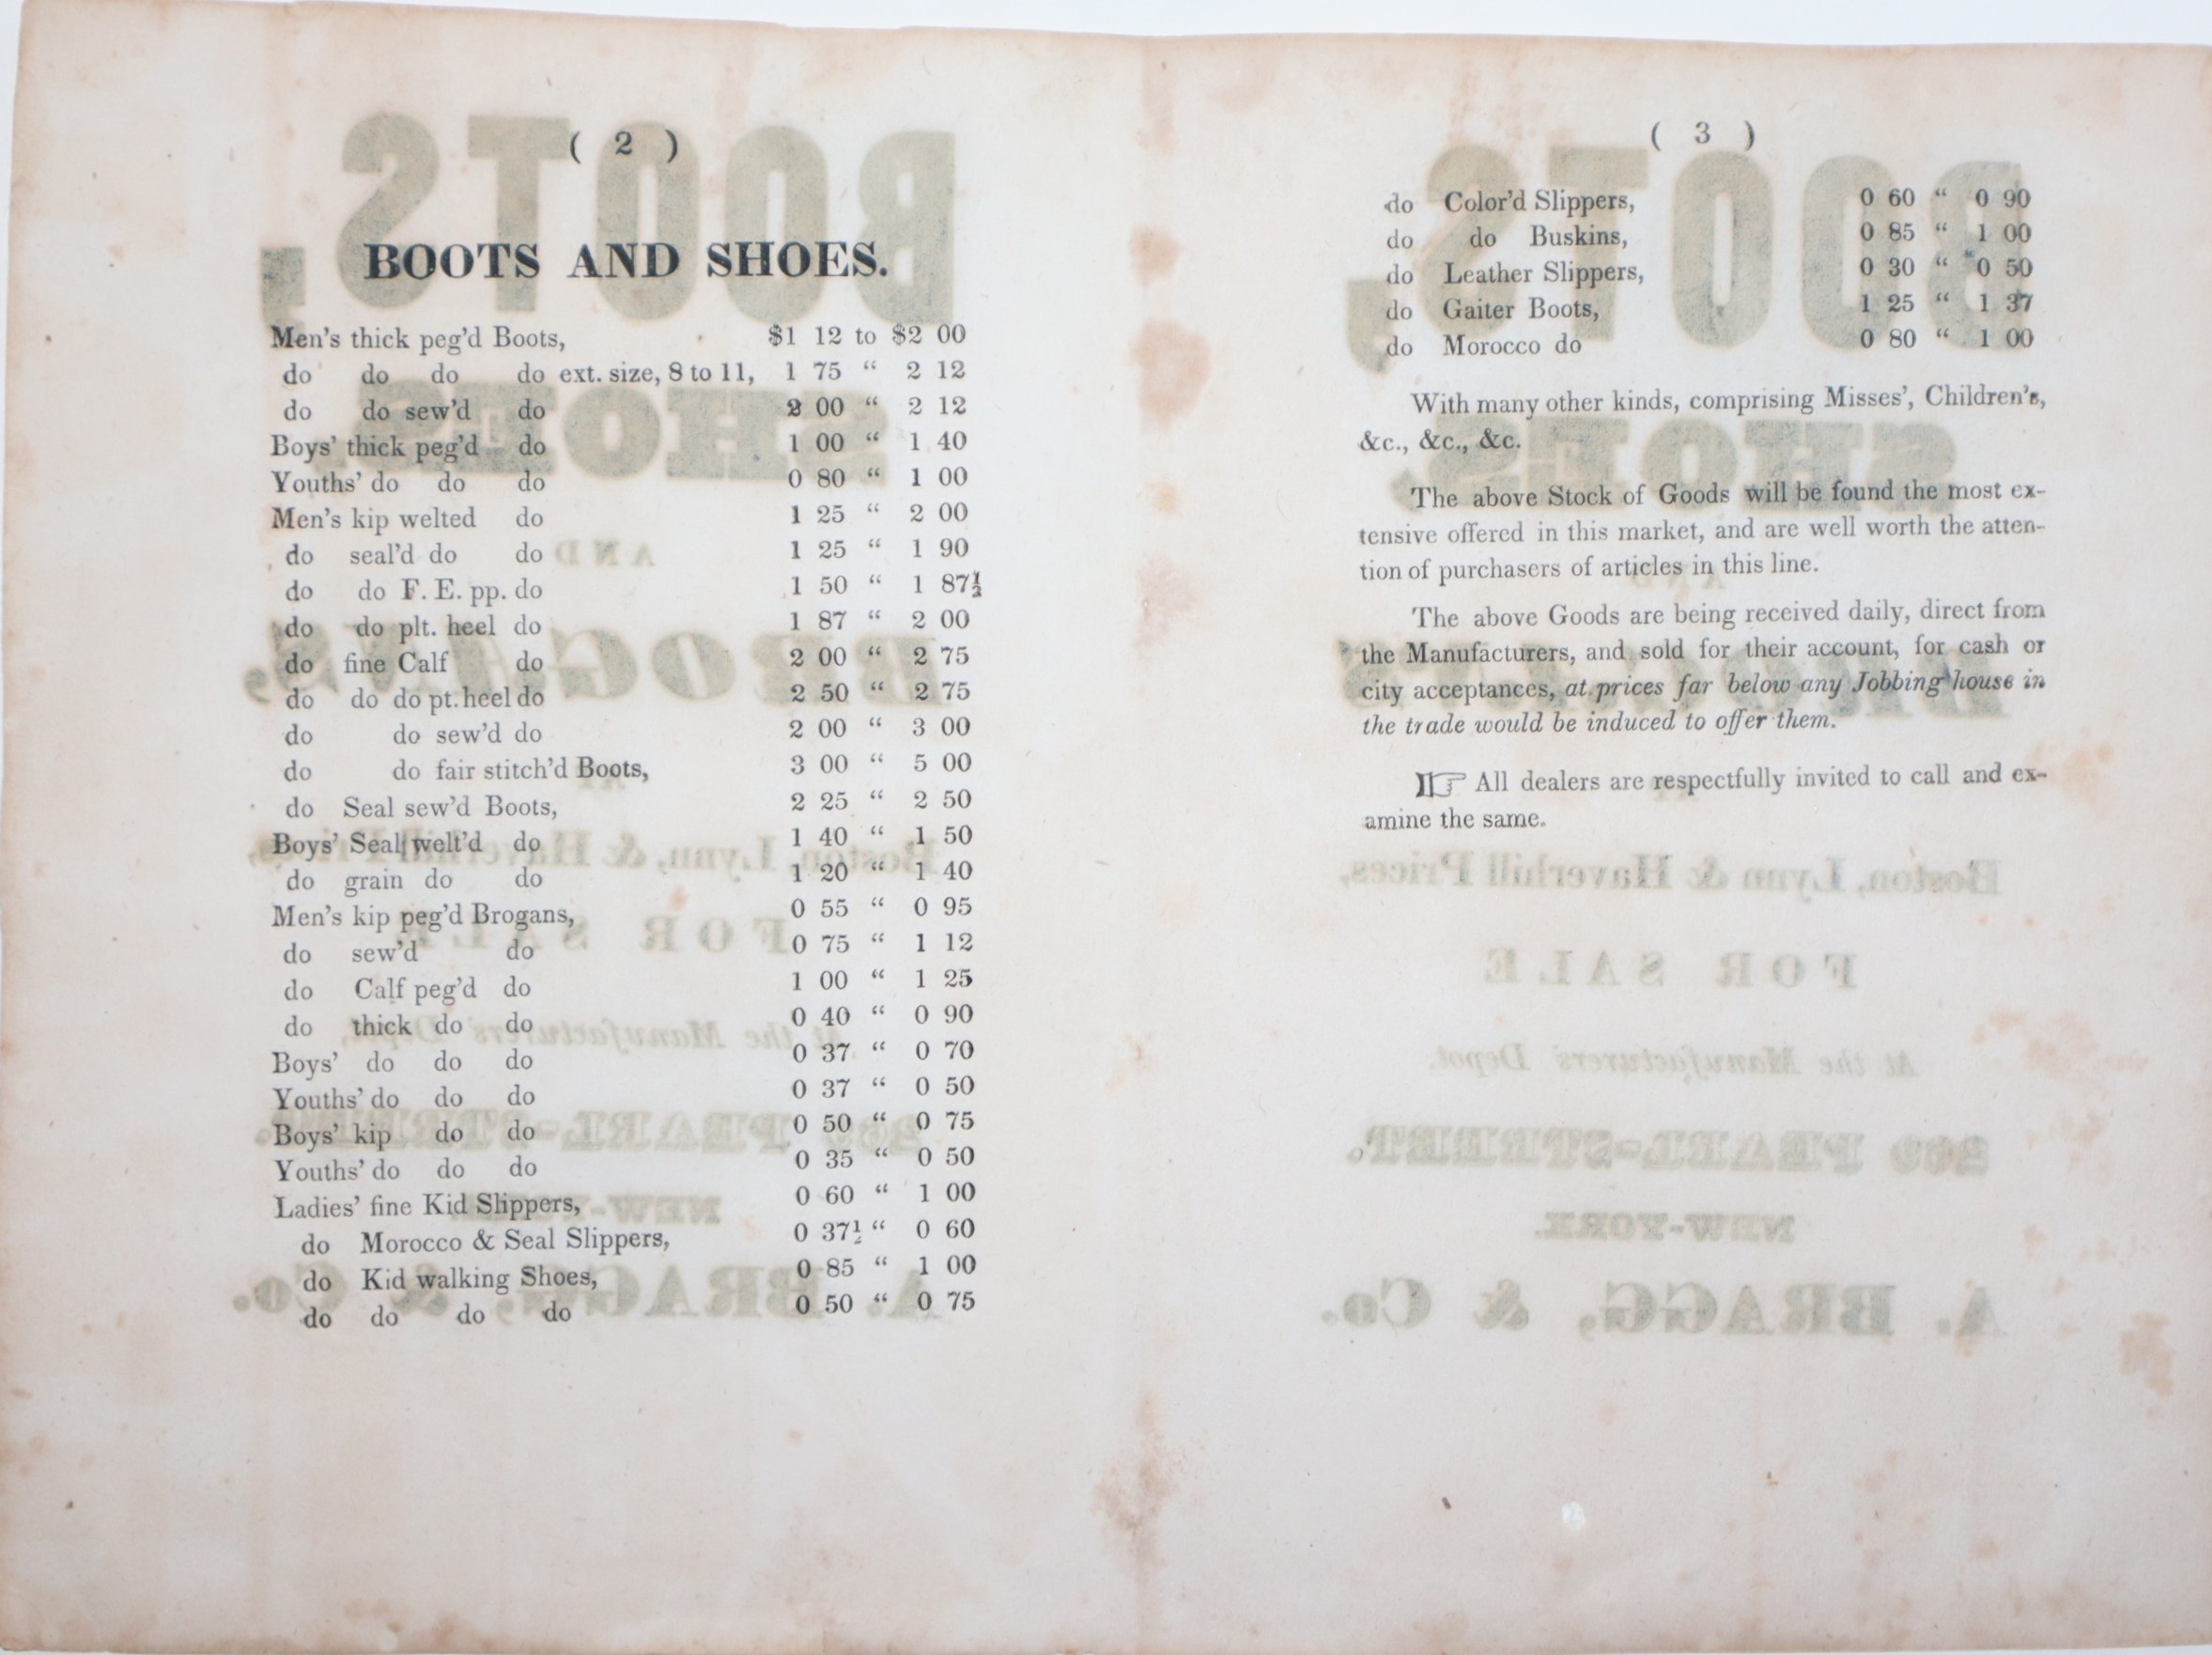 ( 2 )
BOOTS AND SHOES.
Men's thick peg'd Boots, $1 12 to $2 00
do do do do ext. size, 8 to 11, 1 75 “ 2 12
do do sew'd do 2 00 “ 2 12
Boys' thick peg'd do 1 00 “ 1 40
Youths' do do do 0 80 “ 1 00
Men's kip welted do 1 25 “ 2 00
do seal'd do do 1 25 “ 1 90
do do F. E. pp. do 1 50 “ 1 87½
do do plt. heel do 1 87 “ 2 00
do fine Calf do 2 00 “ 2 75
do do do pt. heel do 2 50 “ 2 75
do do sew'd do 2 00 “ 3 00
do do fair stitch'd Boots, 3 00 “ 5 00
do Seal sew'd Boots, 2 25 “ 2 50
Boys' Seal welt'd do 1 40 “ 1 50
do grain do do 1 20 “ 1 40
Men's kip peg'd Brogans, 0 55 “ 0 95
do sew'd do 0 75 “ 1 12
do Calf peg'd do 1 00 “ 1 25
do thick do do 0 40 “ 0 90
Boys' do do do 0 37 “ 0 70
Youths' do do do 0 37 “ 0 50
Boys' kip do do 0 50 “ 0 75
Youths' do do do 0 35 “ 0 50
Ladies' fine Kid Slippers, 0 60 “ 1 00
do Morocco & Seal Slippers, 0 37½ “ 0 60
do Kid walking Shoes, 0 85 “ 1 00
do do do do 0 50 “ 0 75
( 3 )
do Color'd Slippers, 0 60 “ 0 90
do do Buskins, 0 85 “ 1 00
do Leather Slippers, 0 30 “ 0 50
do Gaiter Boots, 1 25 “ 1 37
do Morocco do 0 80 “ 1 00
With many other kinds, comprising Misses', Children's,
&c., &c., &c.
The above Stock of Goods will be found the most ex-
tensive offered in this market, and are well worth the atten-
tion of purchasers of articles in this line.
The above Goods are being received daily, direct from
the Manufacturers, and sold for their account, for cash or
city acceptances, at prices far below any Jobbing house in
the trade would be induced to offer them.
☞ All dealers are respectfully invited to call and ex-
amine the same.
BOOTS,
SHOES
AND
BROGANS,
Boston, Lynn, & Haverhill Prices,
FOR SALE
At the Manufacturers' Depot,
269 PEARL-STREET.
NEW-YORK.
A. BRAGG, & Co.